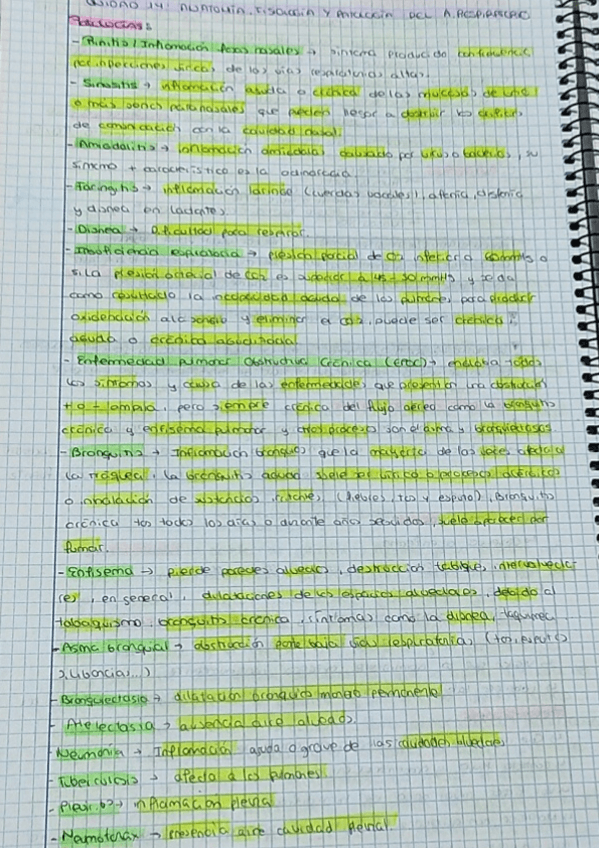 UNIDAD 14: ANATOMÍA, FISIOLOGÍA Y PATOLOGÍA DEL A. RESPIRATORIO
Patologías:
- Rinitis / Inflamación fosas nasales → síntoma producido
por infecciones víricas de las vías respiratorias altas.
- Sinusitis → inflamación aguda o crónica de las mucosas de uno
o más senos paranasales que pueden llegar a obstruir los
de comunicación con la cavidad nasal.
- Amigdalitis → inflamación amígdalas causado por virus o bacterias, su
síntoma + característico es la
- Faringitis → inflamación laringe (cuerdas vocales), afonía,
y disnea en lactantes.
- Disnea → dificultad para respirar.
- Insuficiencia respiratoria → presión parcial de O2 inferior a 60mmHg o
si la presión arterial de CO2 es superior a 45-50 mmHg y se da
como resultado la incapacidad aguda de los pulmones para producir
oxigenación al cuerpo y eliminar el CO2, puede ser crónica,
aguda o crónica agudizada
- Enfermedad pulmonar Obstructiva Crónica (EPOC) → engloba todos
los síntomas y de las enfermedades que presentan una obstrucción
+ o - amplia, pero siempre crónica del flujo aéreo como la bronquitis
crónica y enfisema pulmonar y otros procesos son el asma y
- Bronquitis → Inflamación bronquios que la mayoría de las veces afecta a
la tráquea, la bronquitis aguda suele ser vírico o procesos
o inhalación de sustancias (fiebres, tos y esputo), Bronquitis
crónica tos todos los días durante años seguidos, suele aparecer por
fumar.
- Enfisema → pierde paredes alveolos, destrucción tabiques
en general, dilataciones de los espacios alveolares, debido al
tabaquismo, bronquitis crónica, síntomas como la disnea,
- Asma bronquial → obstrucción parte baja vías respiratorias (tos, esputos
sibilancias...)
- Bronquiectasia → dilatación bronquios permanente
- Atelectasia → ausencia aire
- Neumonía → Inflamación aguda o grave de las
- Tuberculosis → afecta a los pulmones
- Pleuritis → inflamación pleura
- Neumotórax → presencia aire cavidad pleural.